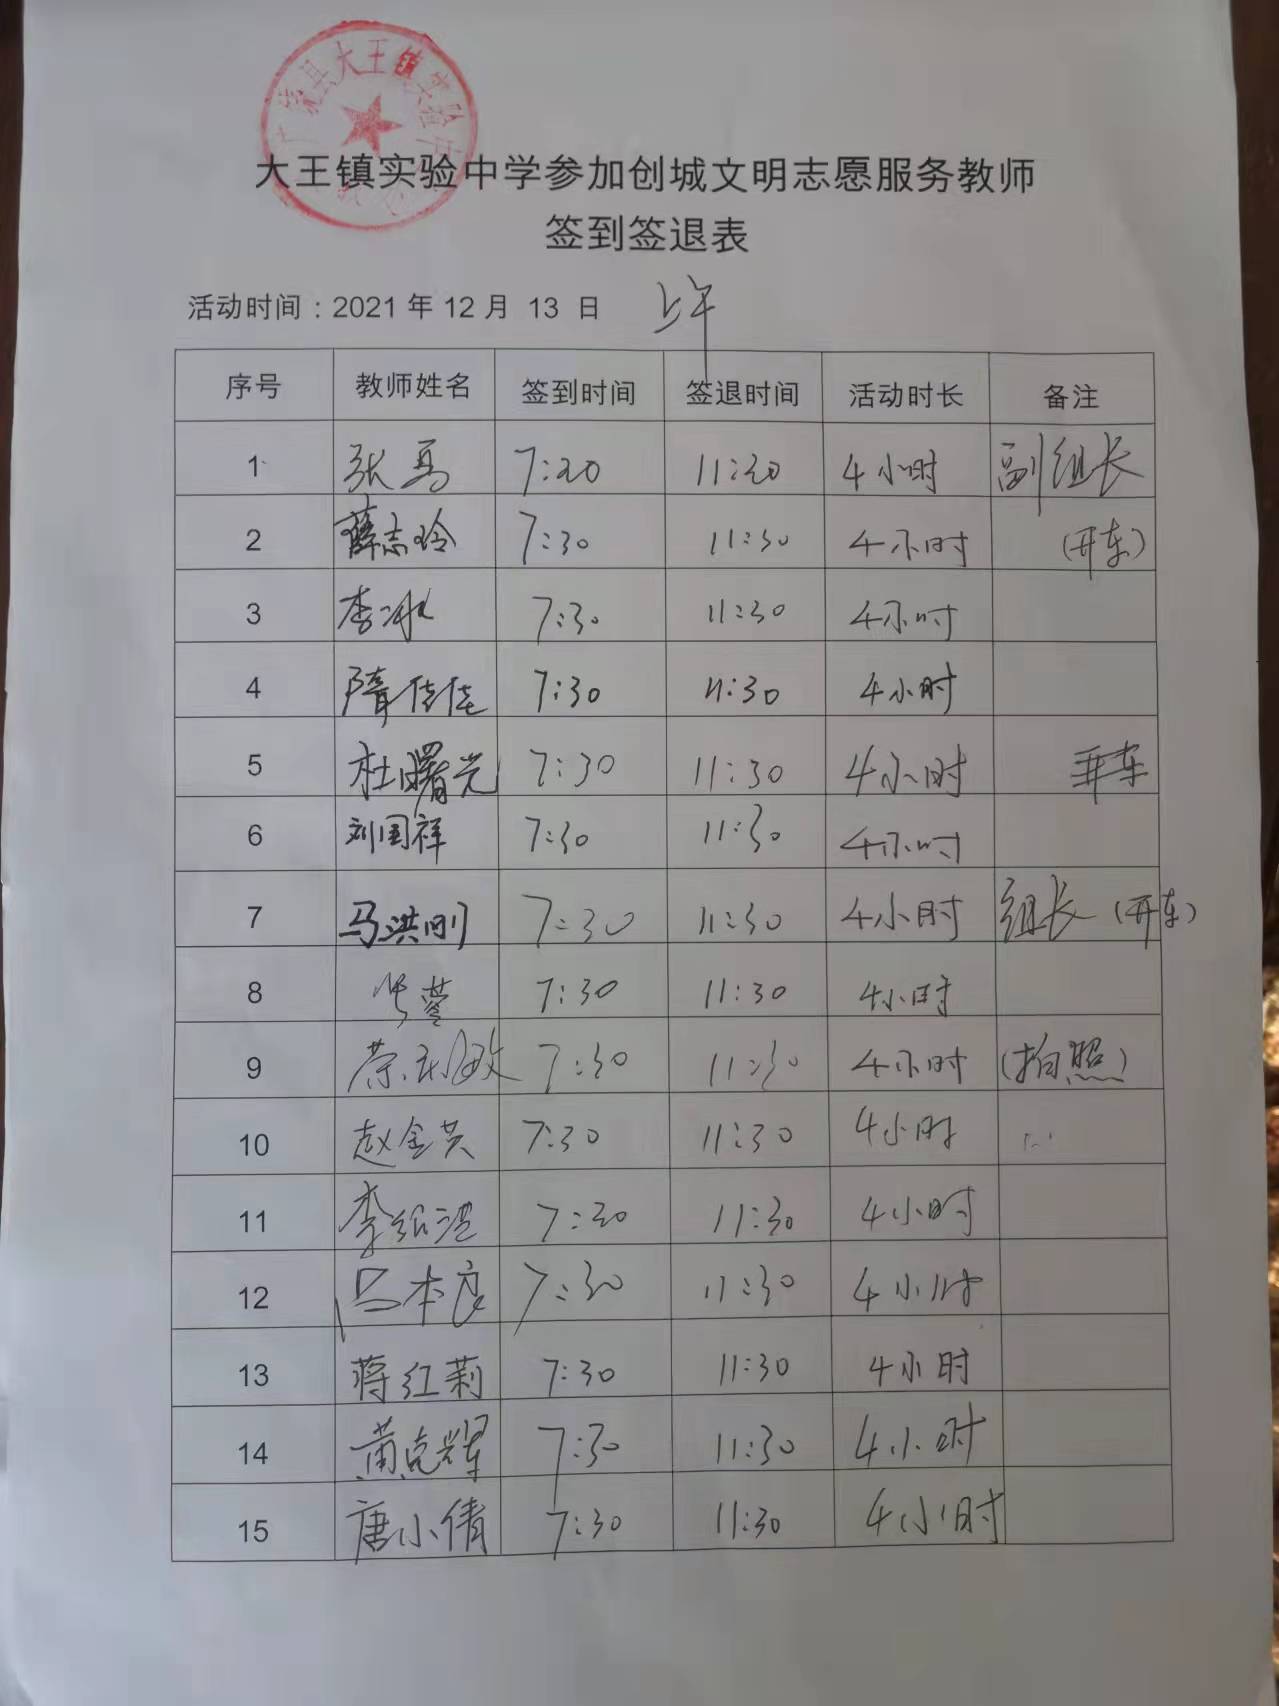 广饶县大王镇实验中学
大王镇实验中学参加创城文明志愿服务教师
签到签退表
活动时间：2021 年 12 月 13 日 上午
序号 教师姓名 签到时间 签退时间 活动时长 备注
1 张马 7:20 11:20 4小时 副组长
2 薛志玲 7:30 11:30 4小时 (开车)
3 李冰 7:30 11:30 4小时
4 隋佳佳 7:30 11:30 4小时
5 杜曙光 7:30 11:30 4小时 开车
6 刘国祥 7:30 11:30 4小时
7 马洪刚 7:30 11:30 4小时 组长 (开车)
8 7:30 11:30 4小时
9 7:30 11:30 4小时 (拍照)
10 赵金英 7:30 11:30 4小时
11 7:30 11:30 4小时
12 吕本良 7:30 11:30 4小时
13 蒋红莉 7:30 11:30 4小时
14 黄克耀 7:30 11:30 4小时
15 唐小倩 7:30 11:30 4小时